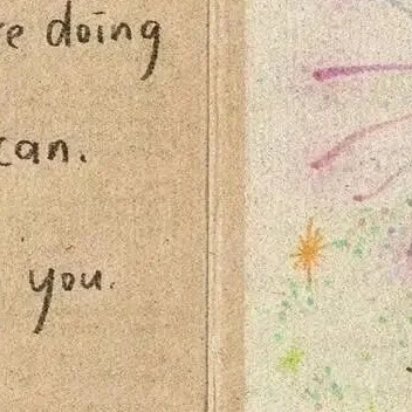 doing
can.
you.